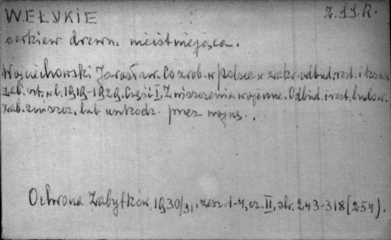 WEŁYKIE Z.S.S.R.
cerkiew drewn. nieistniejąca.
Wojciechowski Jarosław. Co zrob. w Polsce w zakr. odbud. rest. i kons.
zab. szt. w l. 1919-1929. Część I. Zniszczenia wojenne. Odbud. i rest. budow.
zab. zniszcz. lub uszkodz. przez wojnę.
Ochrona Zabytków, 1930/31, zesz. 1-4, cz. II, str. 243-318 (254).